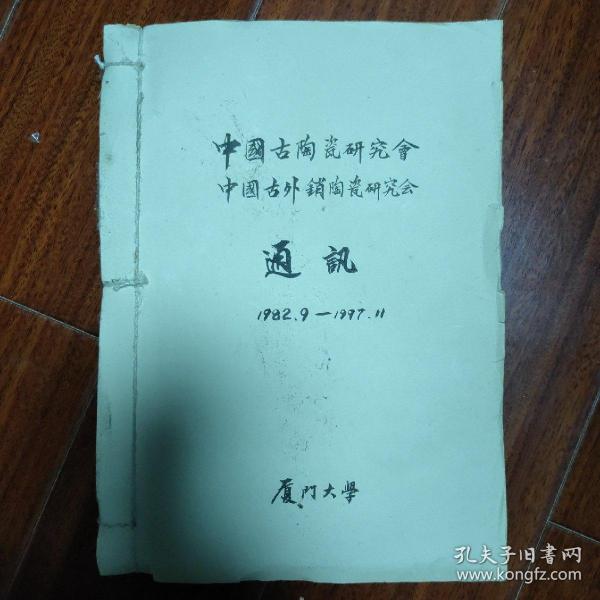 中國古陶瓷研究會
中國古外銷陶瓷研究会
通訊
1982.9—1997.11
厦门大學
孔夫子旧书网
www.kongfz.com